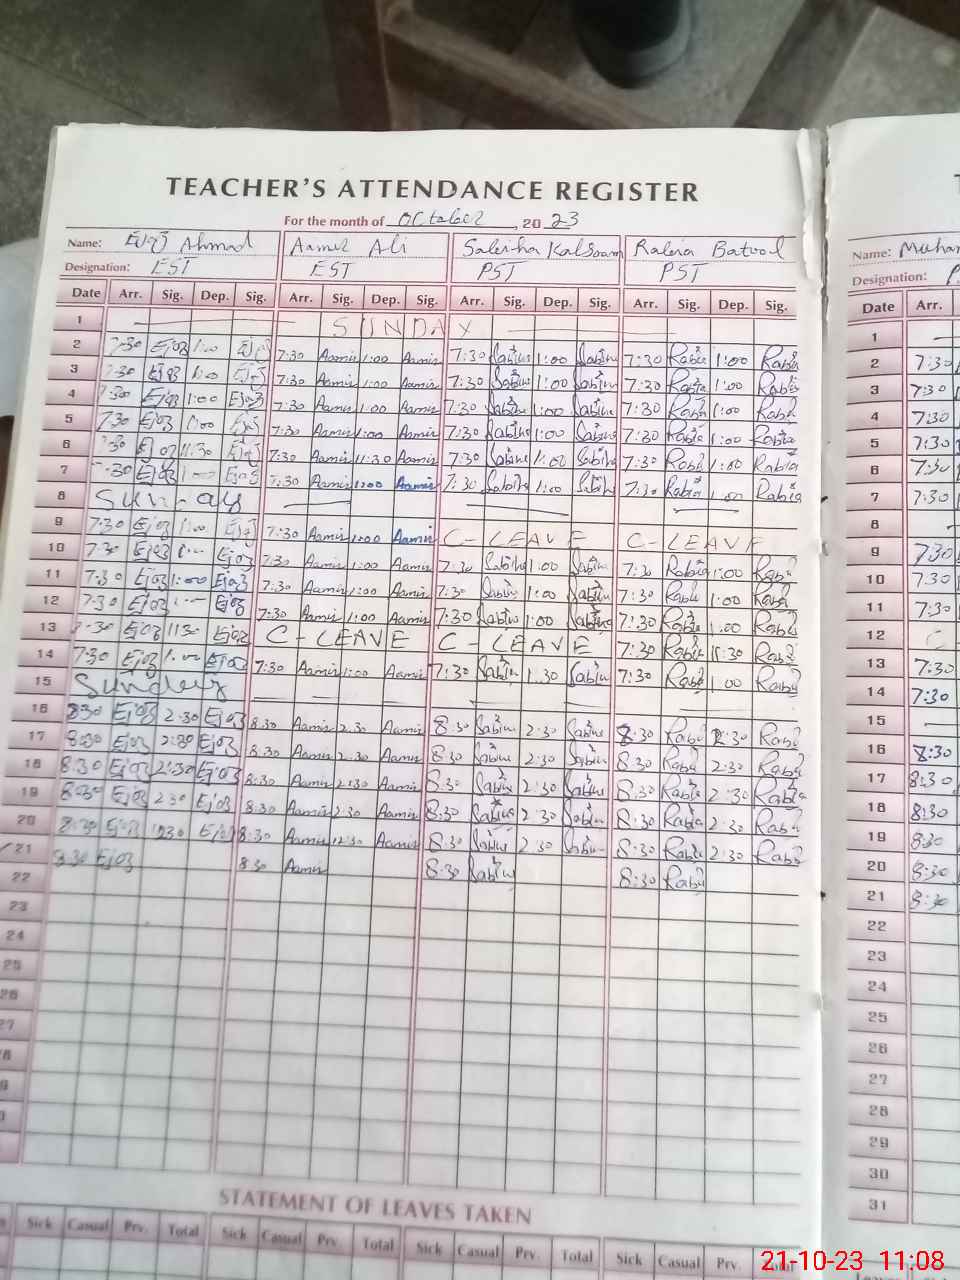 TEACHER'S ATTENDANCE REGISTER
For the month of October, 2023
Name: Ejaz Ahmad Aamir Ali Sabiha Kalsoom Rabia Batool Name:
Designation: EST EST PST PST Designation:
Date Arr. Sig. Dep. Sig. Arr. Sig. Dep. Sig. Arr. Sig. Dep. Sig. Arr. Sig. Dep. Sig. Date Arr.
1 SUNDAY 1
2 7:30 Ejaz 1:00 Ejaz 7:30 Aamir 1:00 Aamir 7:30 Sabiha 1:00 Sabiha 7:30 Rabia 1:00 Rabia 2 7:30
3 7:30 Ejaz 1:00 Ejaz 7:30 Aamir 1:00 Aamir 7:30 Sabiha 1:00 Sabiha 7:30 Rabia 1:00 Rabia 3 7:30
4 7:30 Ejaz 1:00 Ejaz 7:30 Aamir 1:00 Aamir 7:30 Sabiha 1:00 Sabiha 7:30 Rabia 1:00 Rabia 4 7:30
5 7:30 Ejaz 1:00 Ejaz 7:30 Aamir 1:00 Aamir 7:30 Sabiha 1:00 Sabiha 7:30 Rabia 1:00 Rabia 5 7:30
6 7:30 Ejaz 11:30 Ejaz 7:30 Aamir 11:30 Aamir 7:30 Sabiha 1:00 Sabiha 7:30 Rabia 1:00 Rabia 6 7:30
7 7:30 Ejaz Ejaz 7:30 Aamir 1:00 Aamir 7:30 Sabiha 1:00 Sabiha 7:30 Rabia 1:00 Rabia 7 7:30
8 Sunday 8
9 7:30 Ejaz 1:00 Ejaz 7:30 Aamir 1:00 Aamir C-LEAVE C-LEAVE 9 7:30
10 7:30 Ejaz Ejaz 7:30 Aamir 1:00 Aamir 7:30 Sabiha 1:00 Sabiha 7:30 Rabia 1:00 Rabia 10 7:30
11 7:30 Ejaz 1:00 Ejaz 7:30 Aamir 1:00 Aamir 7:30 Sabiha 1:00 Sabiha 7:30 Rabia 1:00 Rabia 11 7:30
12 7:30 Ejaz Ejaz 7:30 Aamir 1:00 Aamir 7:30 Sabiha 1:00 Sabiha 7:30 Rabia 1:00 Rabia 12
13 7:30 Ejaz 1130 Ejaz C-LEAVE C-LEAVE 7:30 Rabia 11:30 Rabia 13 7:30
14 7:30 Ejaz 1:00 Ejaz 7:30 Aamir 1:00 Aamir 7:30 Sabiha 1:30 Sabiha 7:30 Rabia 1:00 Rabia 14 7:30
15 Sunday 15
16 8:30 Ejaz 2:30 Ejaz 8:30 Aamir 2:30 Aamir 8:30 Sabiha 2:30 Sabiha 8:30 Rabia 2:30 Rabia 16 8:30
17 8:30 Ejaz 2:30 Ejaz 8:30 Aamir 2:30 Aamir 8:30 Sabiha 2:30 Sabiha 8:30 Rabia 2:30 Rabia 17 8:30
18 8:30 Ejaz 2:30 Ejaz 8:30 Aamir 2:30 Aamir 8:30 Sabiha 2:30 Sabiha 8:30 Rabia 2:30 Rabia 18 8:30
19 8:30 Ejaz 2:30 Ejaz 8:30 Aamir 2:30 Aamir 8:30 Sabiha 2:30 Sabiha 8:30 Rabia 2:30 Rabia 19 8:30
20 8:30 Ejaz 12:30 Ejaz 8:30 Aamir 12:30 Aamir 8:30 Sabiha 2:30 Sabiha 8:30 Rabia 2:30 Rabia 20 8:30
21 8:30 Ejaz 8:30 Aamir 8:30 Sabiha 8:30 Rabia 21 8:30
22 22
23 23
24 24
25 25
26 26
27 27
28
29
30
31
STATEMENT OF LEAVES TAKEN
Sick Casual Prv. Total Sick Casual Prv. Total Sick Casual Prv. Total Sick Casual Prv. Total
21-10-23 11:08